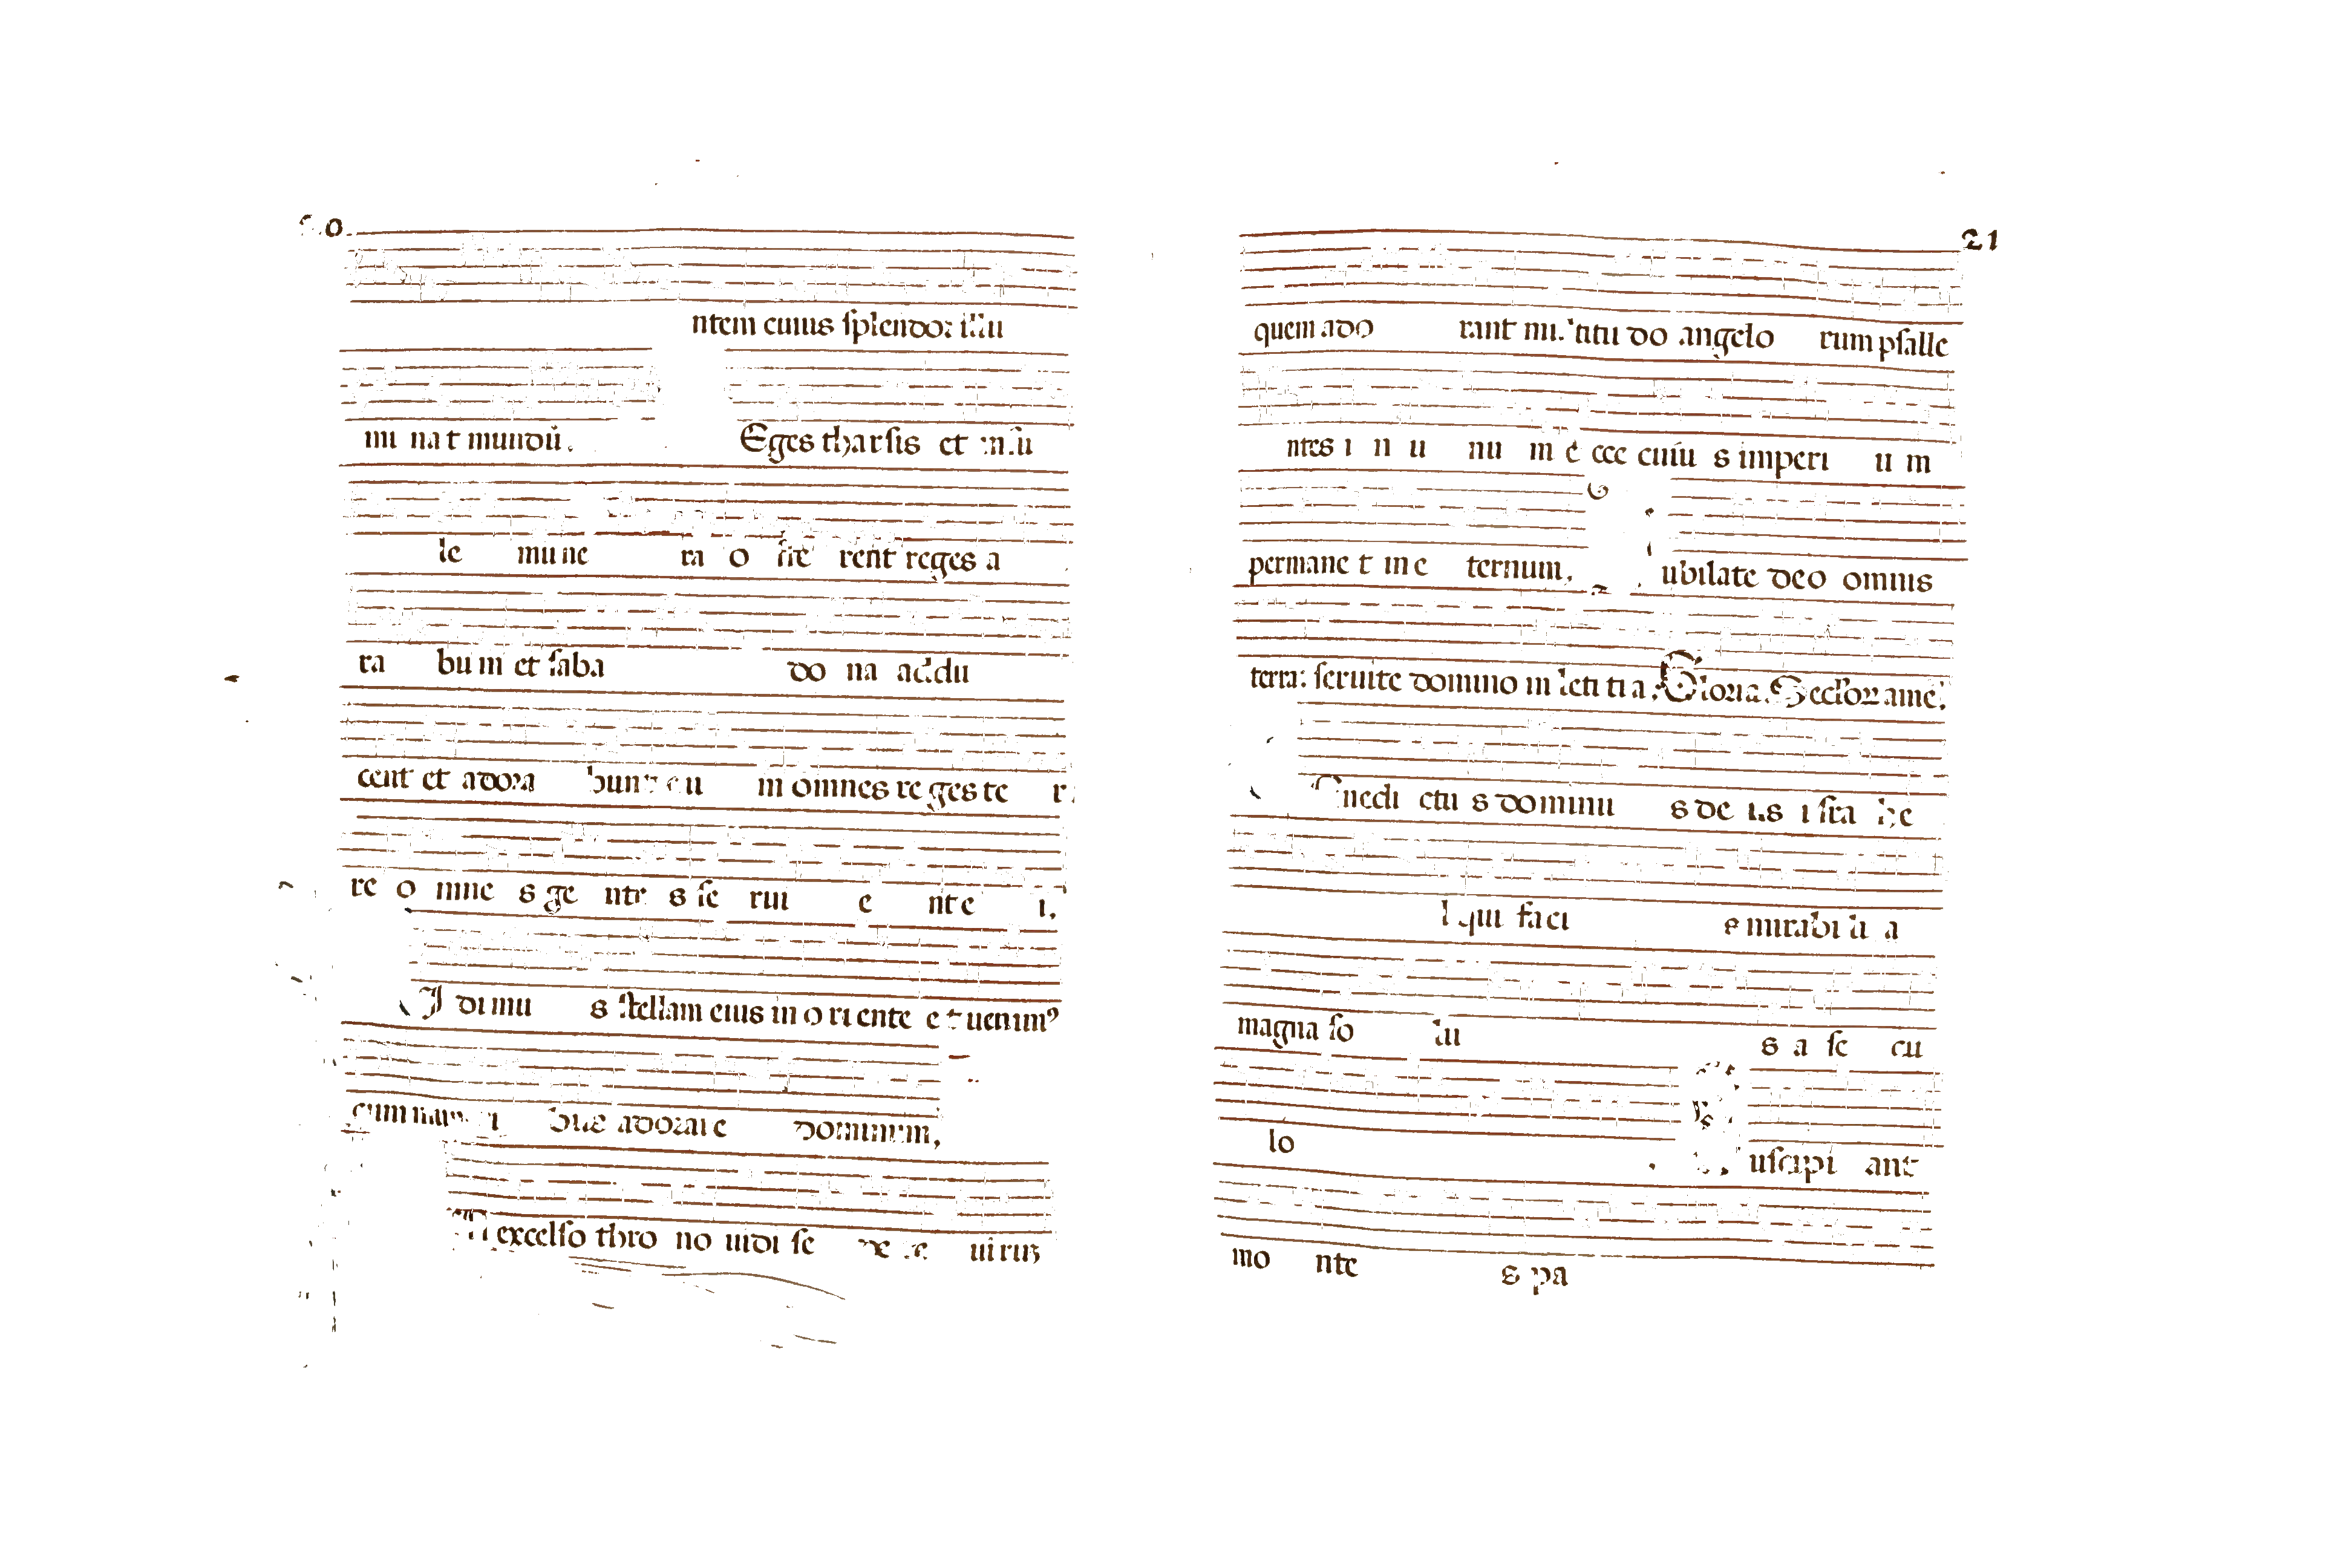 20.
ntem cuius splendor illu
mi nat mundū.
Eges tharsis et insu
le mu ne ra o ffe rent reges a
ra bum et saba do na addu
cent et adora bunt eu m omnes re ges te r
re o mne s ge nte s se rui e nte i.
I dimu s stellam eius in o ri ente e t uenim9
cum bus adorare dominum,
N excelso thro no uidi se de re uiruz
21
quem ado rant multitu do angelo rum psalle
ntes i n u nu m e cce cuiu s imperi u m
permane t in e ternum.
ubilate deo omnis
terra: seruite domino in leti ti a. Gloria. Seclorz ame.
nedi ctu s dominu s de us isra he
l qui faci s mirabi li a
magna so lu s a se cu
lo
uscipi ant
mo nte s pa